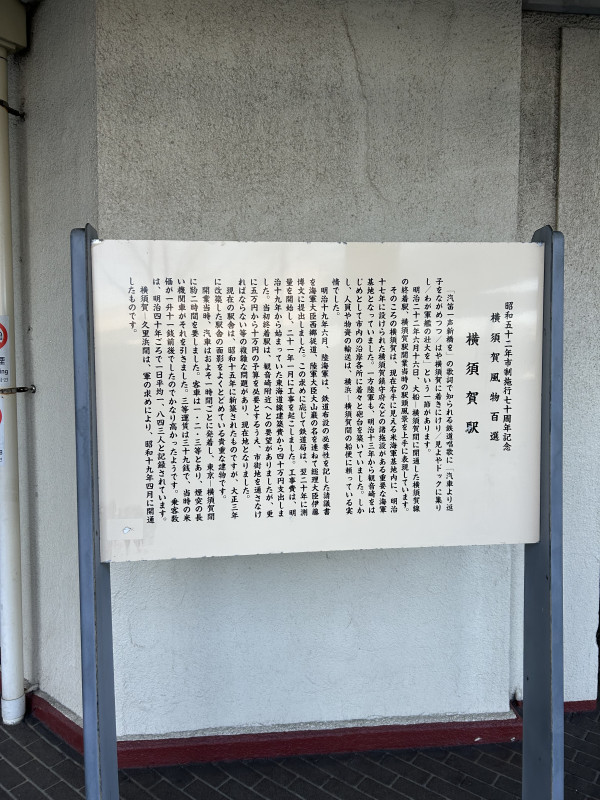 昭和五十二年市制施行七十周年記念
横須賀風物百選
横須賀駅
「汽笛一声新橋を」の歌詞で知られる鉄道唱歌に「汽車より逗
子をながめつつ/はや横須賀に着きにけり/見よやドックに集り
し/わが軍艦の壮大を」という一節があります。
明治二十二年六月十六日、大船―横須賀間に開通した横須賀線
の終着駅、横須賀駅開業当時の駅頭風景を上手に表現しています。
そのころの横須賀は、現在右手に見える米海軍基地内に、明治
十七年に設けられた横須賀鎮守府などの諸施設がある重要な海軍
基地となっていました。一方陸軍も、明治十三年から観音崎をは
じめとして市内の沿岸各所に着々と砲台を築いていました。しか
し、人員や物資の輸送は、横浜―横須賀間の船便に頼っている実
情でした。
明治十九年六月、陸海軍は、鉄道布設の必要性を記した請議書
を海軍大臣西郷従道、陸軍大臣大山巌の名を連ねて総理大臣伊藤
博文に提出しました。この求めに応じて鉄道局は、翌二十年に測
量を開始し、二十一年一月に工事を起こしました。工事費は、明
治十九年から始まっていた東海道線建築費から四十万円支出しま
した。当初終着駅は、観音崎附近へとの要望がありましたが、更
に五万円から十万円の予算を必要とするうえ、市街地を通さなけ
ればならない等の複雑な問題があり、現在地となりました。
現在の駅舎は、昭和十五年に新築されたものですが、大正三年
に改築した駅舎の面影をよくとどめている貴重な建物です。
開業当時、汽車はおよそ一時間ごとに発着、東京―横須賀間
に約二時間を要しました。客車は一・二・三等とあり、煙突の長
い機関車がそれを引きました。三等運賃は三十九銭で、当時の米
価が一升十一銭前後でしたのでかなり高かったようです。乗客数
は、明治四十年ごろで一日平均一、八四三人と記録されています。
横須賀―久里浜間は、軍の求めにより、昭和十九年四月に開通
したものです。